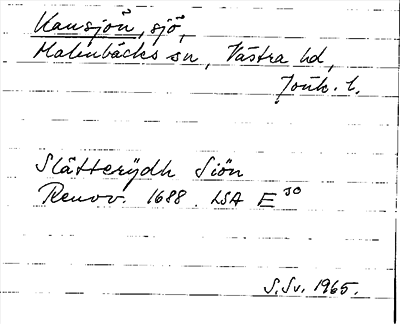 Kansjön, sjö,
Malmbäcks sn, Västra hd,
Jönk. l.
Slätterÿdh Siön
Renov. 1688. LSA E 30
S.Sv. 1965.